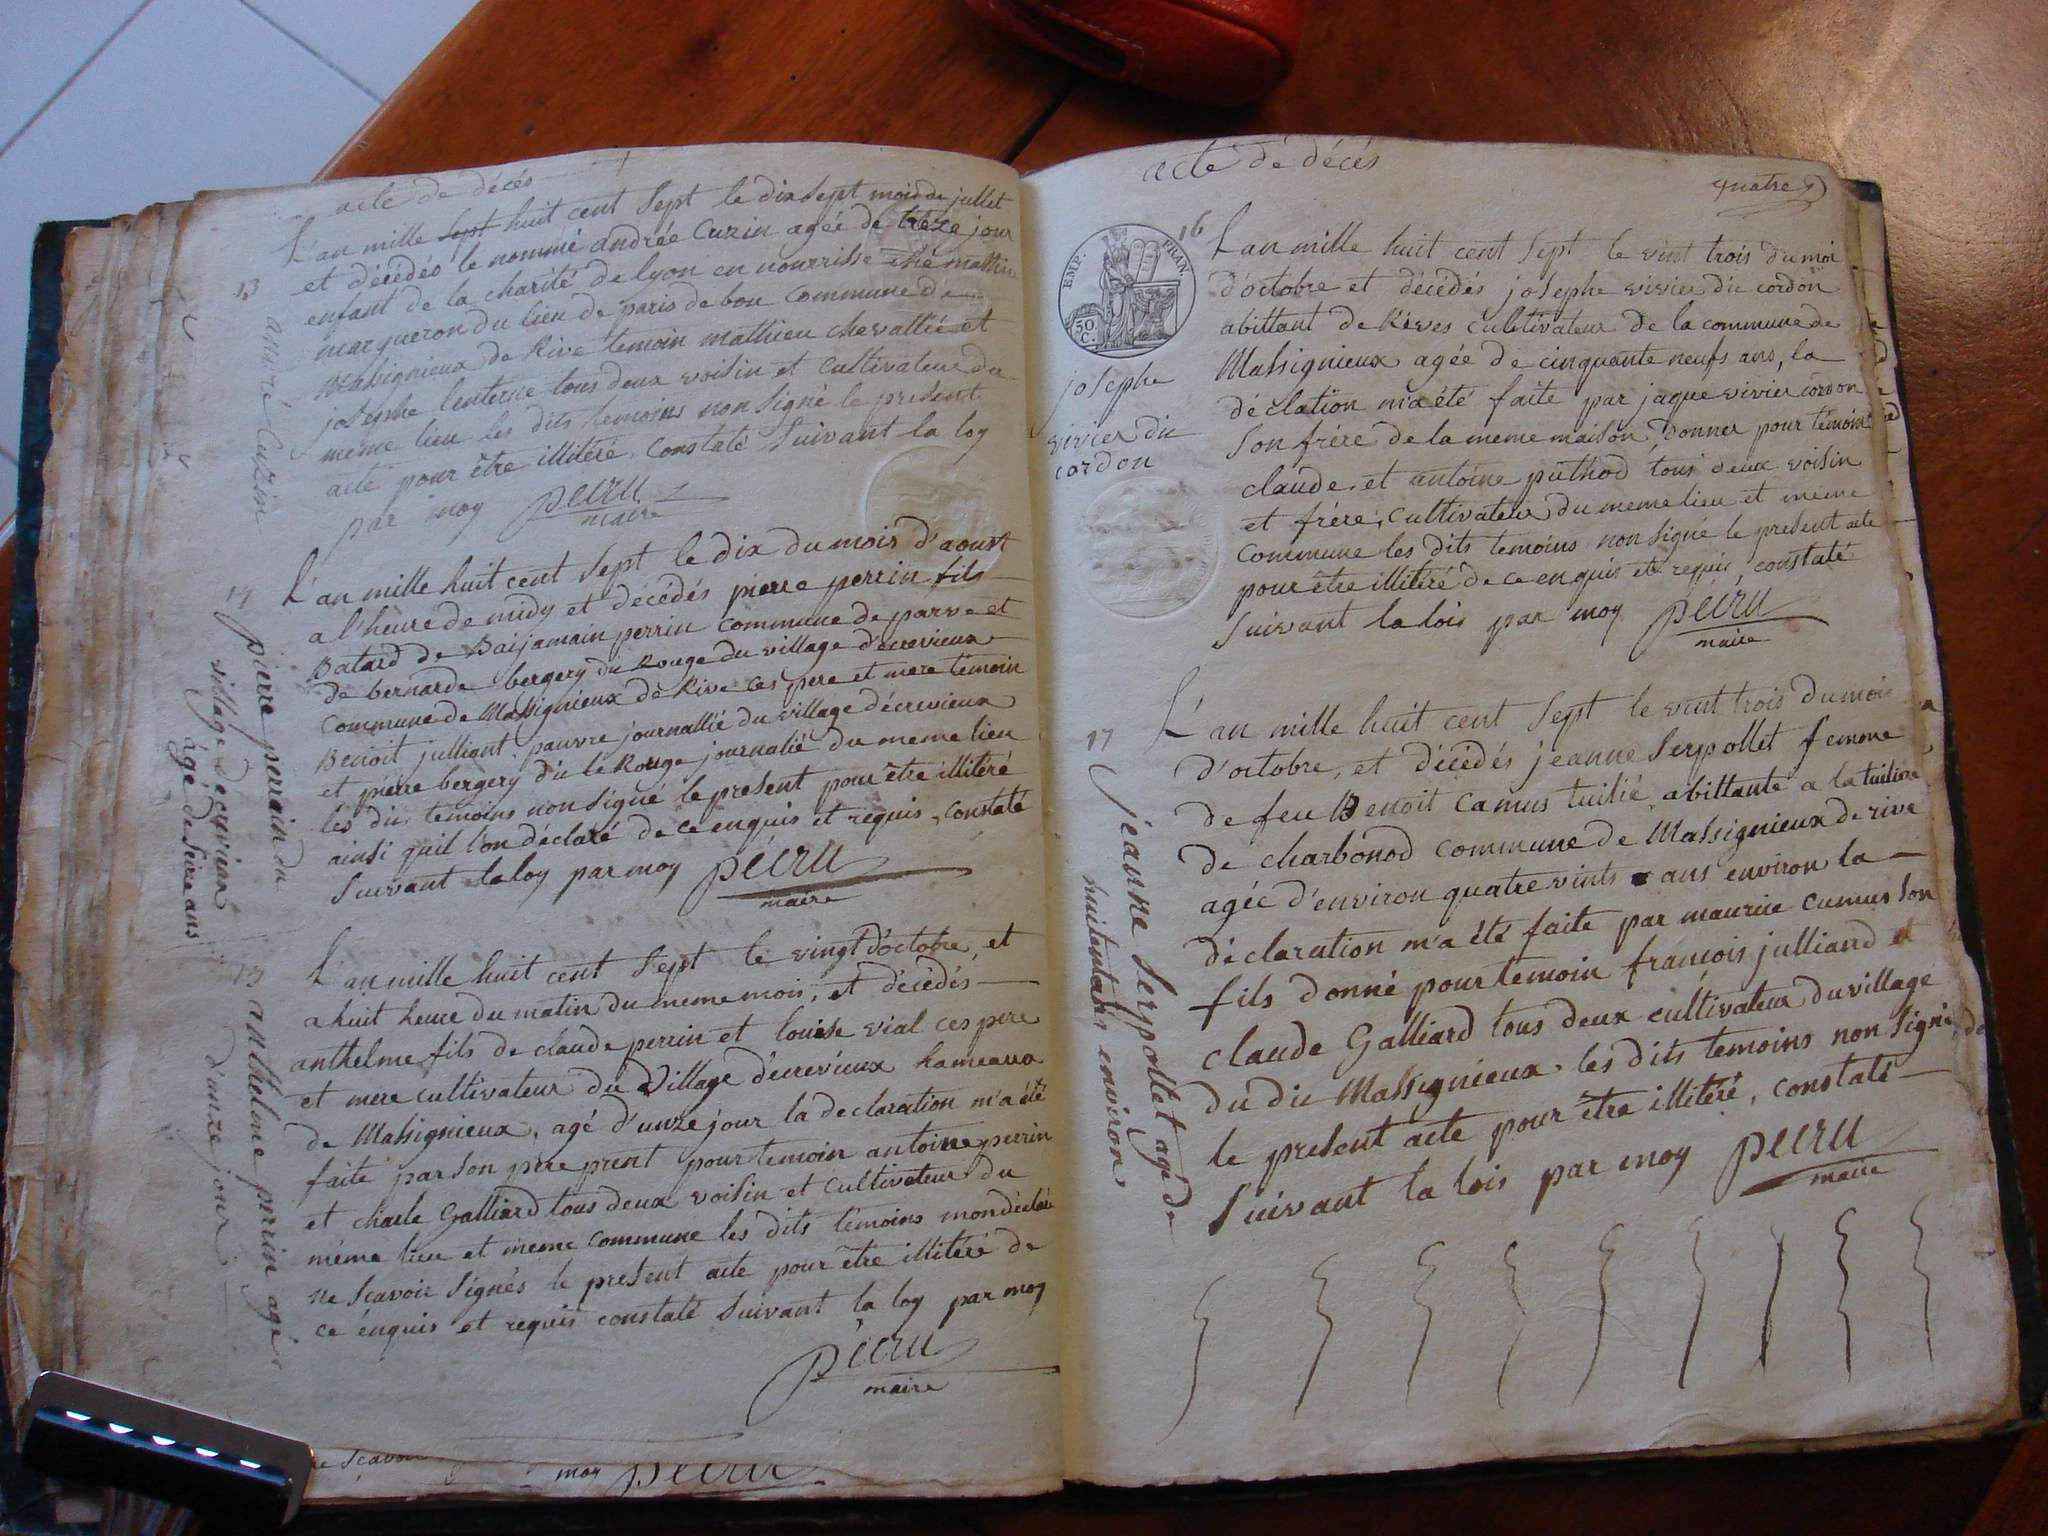 acte de décés
13
andré Cuzin
L'an mille sept huit cent sept le dix sept mois de jullet
et décédés le nommé andrée Cuzin agée de treze jour
enfant de la charité de lyon en nourrisse ché mathin
marqueron du lieu de paris de bou commune de
Massignieux de Rive temoin mathieu chevallié et
josephe lenterne tous deux voisin et cultivateur du
meme lieu les dits temoins non signé le present
acte pour être illitéré, constaté suivant la loy
par moy pecru
maire
14
pierre perrain du
village decrivieux
agé de seire ans
L'an mille huit cent sept le dix du mois d'aoust
a l'heure de midy et décédés pierre perrin fils
Batard de Baijamain perrin commune de parve et
de bernarde bergery du Rouge du village d'écrevieux
commune de Massignieux de Rive ces pere et mere temoin
Benoit julliant pauvre journallié du village décrevieux
et pierre bergery du le Rouge journalié du meme lieu
les dis temoins non signé le present pour être illitéré
ainsi quil l'on declaré de ce enquis et requis, constaté
suivant la loy par moy pécru
maire
15
anthelme perrin agé
d'unze jour
L'an mille huit cent sept le vingt d'octobre, et
a huit heure du matin du meme mois, et décédés
anthelme fils de claude perrin et louise vial ces pere
et mere cultivateur du village d'écrevieux hameaux
de Massignieux, agé d'unze jour la declaration m'a été
faite par son père prent pour temoin antoine perrin
et charle Galliard tous deux voisin et cultivateur du
méme lieu et meme commune les dits témoins mon déclaré
ne scavoir signés le present acte pour être illitéré de
ce énquis et requis constaté suivant la loy par moy
pécru
maire
scavoir
moy pécru
acte de décés
quatre
EMP. FRAN
50. C.
16
josephe
vivier du
cordon
L'an mille huit cent sept le vint trois du moi
d'octobre et décédés josephe vivier du cordon
abittant de Rives culetivateur de la commune de
Massignieux agée de cinquante neufs ans, la
déclation m'a été faite par jaque vivier cordon
son frére de la meme maison, donner pour témoins
claude et antoine puthod tous deux voisin
et frére, cultivateur du meme lieu et meme
commune les dits temoins non signé le present acte
pour être illitéré de ce enquis et requis, constaté
suivant la lois par moy pécru
maire
17
jeanne serpollet agé de
huitentans environ
L'an mille huit cent sept le vint trois du mois
d'octobre, et décédés jeanne serpollet femme
de feu Benoit camus tuilié abittante a la tuiliere
de charbonod commune de Massignieux de rive
agée d'environ quatre vints ans environ la
déclaration m'a été faite par maurice camus son
fils donné pour temoin françois julliand et
claude Galliard tous deux cultivateur du village
du du Massignieux les dits temoins non signé, de
le present acte pour être illitéré, constaté
suivant la lois par moy pécru
maire